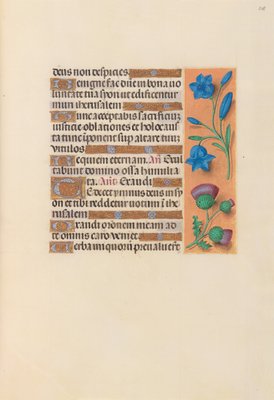 deus non despicies
Benigne fac dñe in bona vo
luntate tua syon ut edificentur
muri iherusalem
Tunc acceptabis sacrificium
iusticie oblationes et holocaus
ta tunc iponent sup altare tuum
vitulos
Requiem eternam. An̄ Exul
tabunt domino ossa humilia
ta. An̄ Exaudi
Te decet ymnus deus in sy
on et tibi reddetur votum i ihe
rusalem
Exaudi orōnem meam ad
te omnis caro veniet
Verba iniquorum preualuere